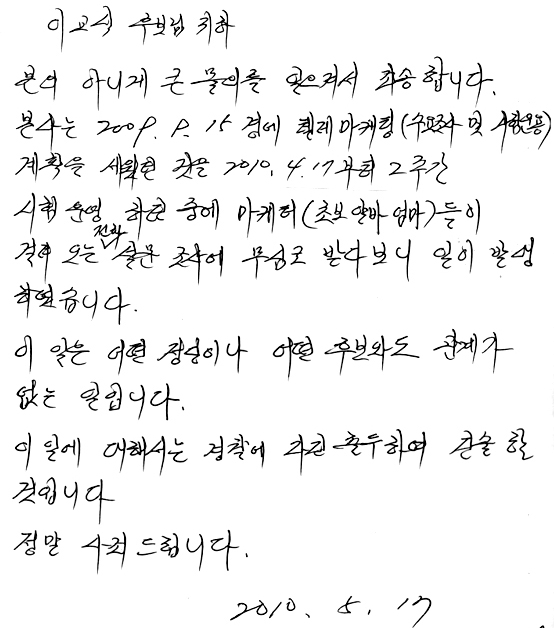 이교식 후보님 귀하
본의 아니게 큰 물의를 일으켜서 죄송합니다.
본사는 2009. 9. 15 경에 텔레마케팅(수요조사 및 시험운용)
계획을 세웠던 것을 2010. 4. 17 부터 2주간
시험 운영 하던 중에 마케터(초보 알바 엄마)들이
걸려 오는 전화 설문 조사에 무심코 받다보니 일이 발생
하였습니다.
이 일은 어떤 정당이나 어떤 후보와도 관계가
없는 일입니다.
이 일에 대해서는 경찰에 자진 출두하여 진술 할
것입니다
정말 사죄 드립니다.
2010. 5. 17